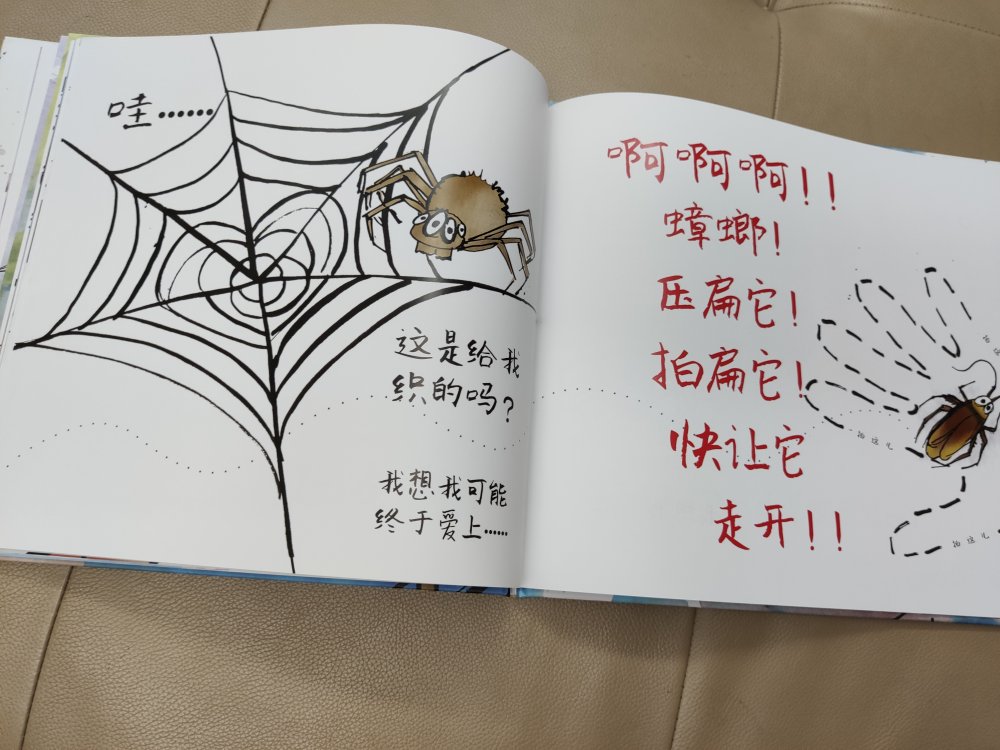 哇……
这是给我
织的吗？
我想我可能
终于爱上……
啊啊啊！！
蟑螂！
压扁它！
拍扁它！
快让它
走开！！
拍这儿
拍这儿